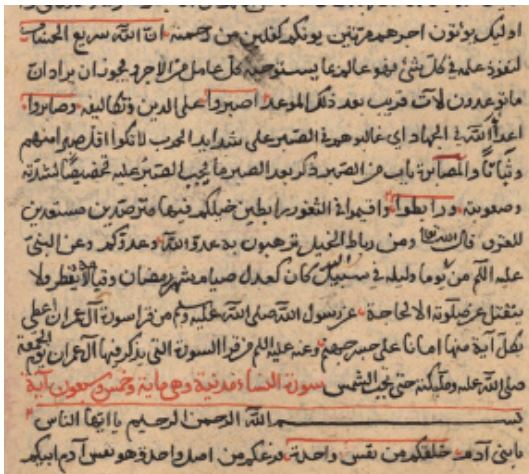 اوليك يؤتون اجرهم مرتين يوتكم كفلين من رحمته ان الله سريع الحساب
لنفوذ علمه فى كل شئ فهو عالم بما يستوجبه كل عامل من الاجر ويجوز ان يراد ان
ما توعدون لآت قريب بعد ذكر الموعد اصبروا على الدين وتكاليفه وصابروا
اعداء الله فى الجهاد اى غالبوهم فى الصبر على شدايد الحرب لا تكونوا اقل صبرا منهم
وثباتا والمصابرة باب من الصبر ذكر بعد الصبر على ما يجب الصبر عليه تخصيصا لشدته
وصعوبته ورابطوا واقيموا فى الثغور رابطين خيلكم فيها مترصدين مستعدين
للغزو قال الله تعالى ومن رباط الخيل ترهبون به عدو الله وعدوكم وعن النبى
عليه السلم من رابط يوما وليلة فى سبيل الله كان كعدل صيام شهر رمضان وقيامه لا يفطر ولا
ينفتل عن صلوته الا لحاجة عن رسول الله صلى الله عليه وسلم من قرا سورة آل عمران اعطى
بكل آية منها امانا على جسر جهنم وعنه عليه السلم من قرا السورة التى يذكر فيها آل عمران يوم الجمعة
صلى الله عليه وملئكته حتى تحجب الشمس سورة النساء مدنية وهى ماية وخمس وسبعون آية
بسم الله الرحمن الرحيم يا ايها الناس
يا بنى آدم خلقكم من نفس واحدة فرعكم من اصل واحد وهو نفس آدم ابيكم